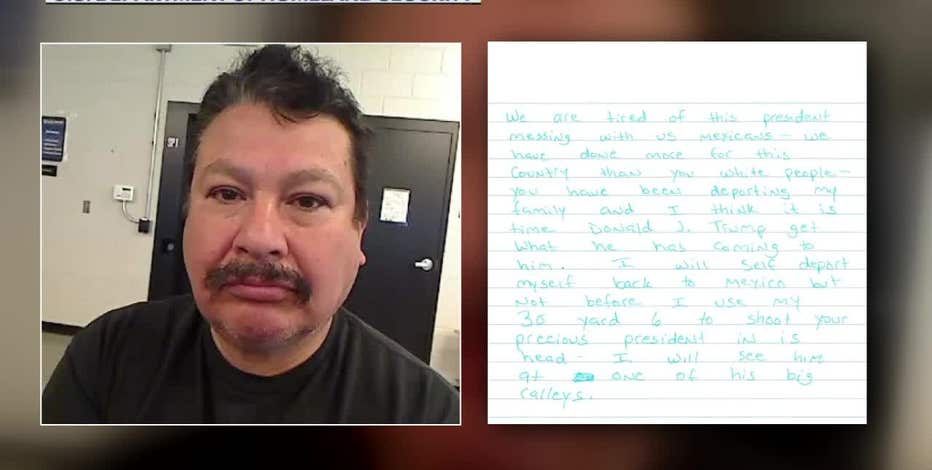 We are tired of this president
messing with us mexicans - we
have done more for this
Country than you white people -
you have been deporting my
family and I think it is
time Donald J. Trump get
what he has coming to
him. I will self deport
myself back to Mexico but
not before I use my
30 yard 6 to shoot your
precious president in is
head - I will see him
at one of his big
ralleys.